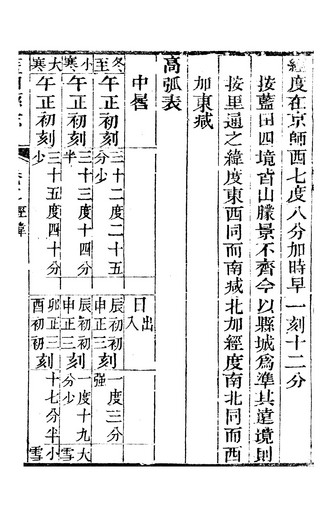 經度在京師西七度八分加時早一刻十二分
按藍田四境皆山朦景不齊今以縣城爲準其遠境則
按里通之緯度東西同而南減北加經度南北同而西
加東減
高弧表
中晷 日出入
冬至 午正初刻 三十二度二十五分少 辰初初申正三刻 一度三分強
小寒 午正初刻 三十三度十四分半 辰初初申正三刻 一度十九分少 大雪
大寒 午正初刻 三十五度四十分少 卯正三酉初初刻 十七分半 小雪
經緯